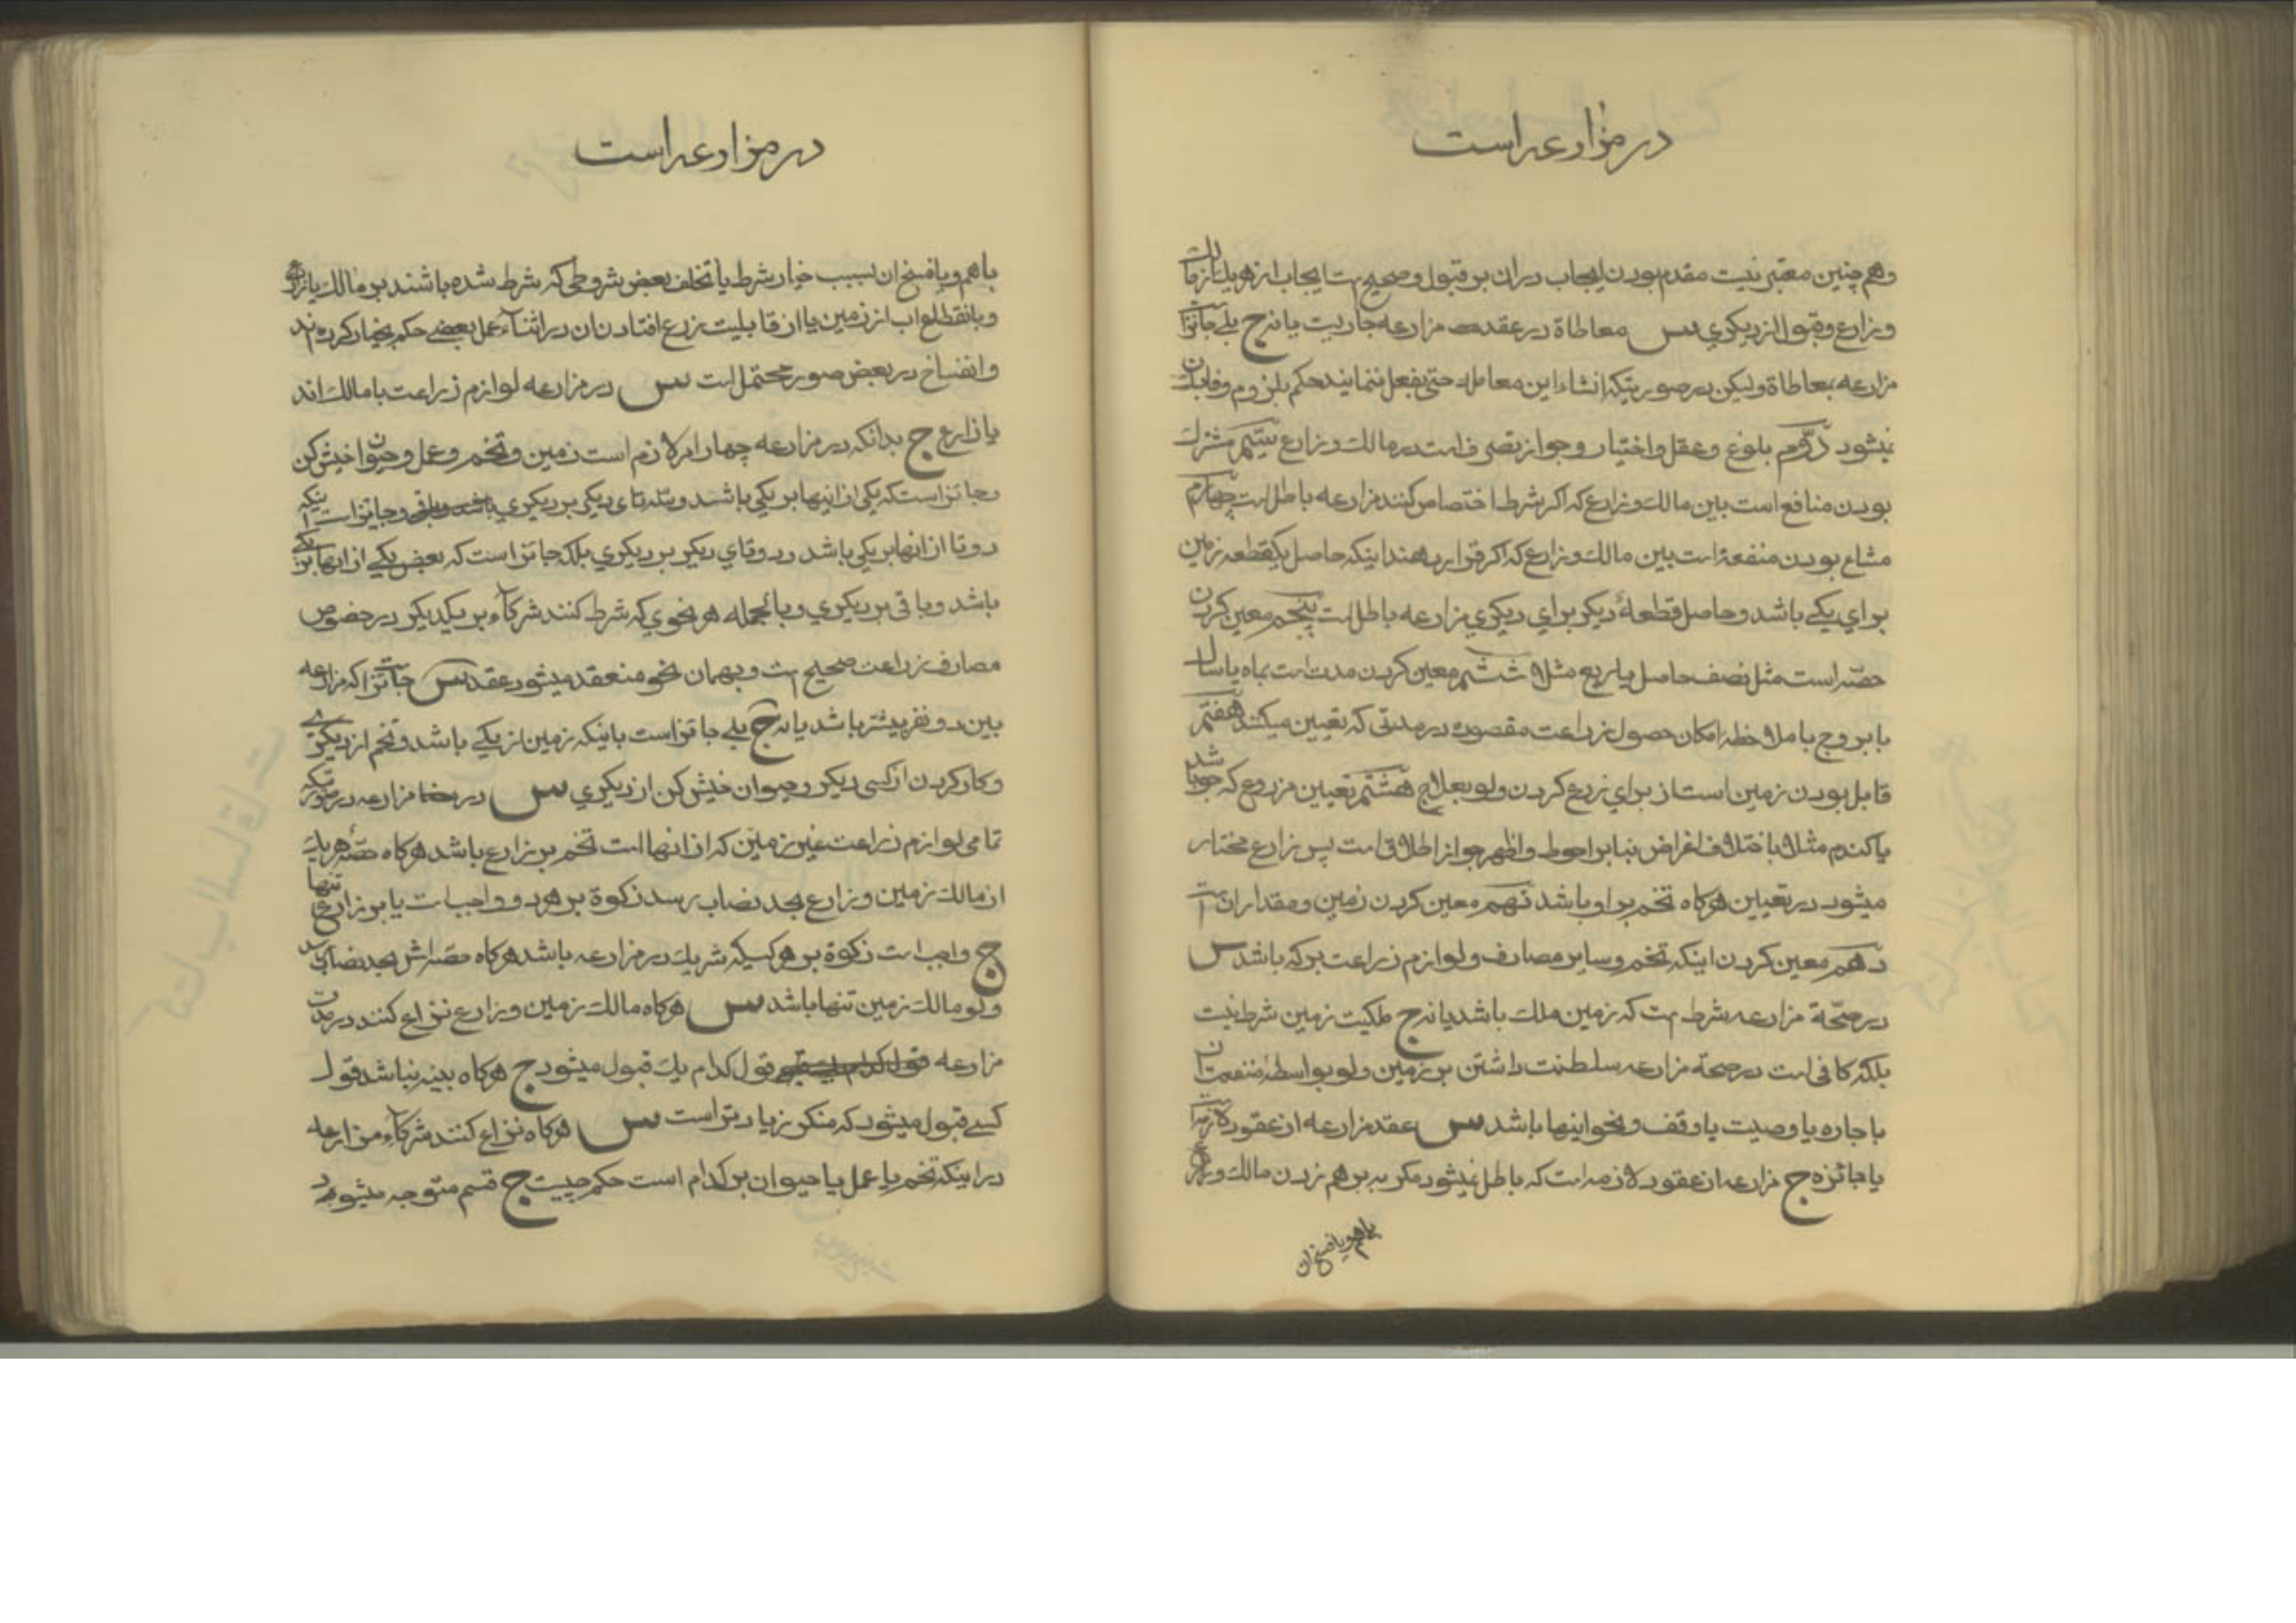 در مزارعه است
وهم چنین معتبر نیست مقدم بودن ایجاب در ان بر قبول و صحیح است ایجاب از هر یک از مالک
و زارع و قبول از دیکری س معاطاة در عقد مزارعه جاریست یا نه ج بلی جائز است
مزارعه بمعاطاة ولیکن در صورتیکه انشاء این معامله حتی بفعل ننمایند حکم بلزوم وفا بان
نمیشود دوم بلوغ و عقل و اختیار و جواز تصرف است در مالک و زارع سیم مشترک
بودن منافع است بین مالک و زارع که اکر شرط اختصاص کنند مزارعه باطل است چهارم
مشاع بودن منفعة است بین مالک و زارع که اکر قرار بدهند اینکه حاصل یکقطعه زمین
برای یکی باشد و حاصل قطعهٔ دیکر برای دیکری مزارعه باطل است پنجم معین کردن
حصّه است مثل نصف حاصل یا ربع مثلا ششم معین کردن مدت است بماه یا سال
یا بروج با ملاحظه امکان حصول زراعت مقصوده در مدتی که تعیین میکنند هفتم
قابل بودن زمین است از برای زرع کردن ولو بعلاج هشتم تعیین مزروع که جو باشد
یا کندم مثلا با اختلاف اغراض بنابر احوط و اظهر جواز اطلاق است پس زارع مختار
میشود در تعیین هرکاه تخم بر او باشد نهم معین کردن زمین و مقدار ان است
دهم معین کردن اینکه تخم و سایر مصارف و لوازم زراعت بر که باشد س
در صحّة مزارعه شرط است که زمین ملک باشد یا نه ج ملکیت زمین شرط نیست
بلکه کافی است در صحة مزارعه سلطنت داشتن بر زمین ولو بواسطهٔ منفعت ان
باجاره یا وصیت یا وقف و نحو اینها باشد س عقد مزارعه از عقود لازمه است
یا جائزه ج مزارعه از عقود لازمه است که باطل نمیشود مکر به بر هم زدن مالک و زارع
باهم و یا فسخ ان
در مزارعه است
باهم و یا فسخ ان بسبب خیار شرط یا تخلف بعض شروطی که شرط شده باشند بر مالک یا زارع
و بانقطاع اب از زمین یا از قابلیت زرع افتادن ان در اثناء عمل بعضے حکم بخیار کرده اند
و انفساخ در بعض صور محتمل است س در مزارعه لوازم زراعت با مالک اند
یا زارع ج بدانکه در مزارعه چهار امر لازم است زمین و تخم و عمل و حیوان خیش کن
و جائز است که یکی از اینها بر یکی باشد و سه تای دیکر بر دیکری و جایز است اینکه
دو تا از انها بر یکی باشد و دو تای دیکر بر دیکری بلکه جائز است که بعض یکی از انها بر یکے
باشد و باقی بر دیکری و بالجمله هر نحوی که شرط کنند شرکاء بر یکدیکر در خصوص
مصارف زراعت صحیح است و بهمان نحو منعقد میشود عقد س جائز است که مزارعه
بین دو نفر بیشتر باشد یا نه ج بلی جائز است باینکه زمین از یکے باشد و تخم از دیکری
و کار کردن از کسی دیکر و حیوان خیش کن از دیکری س در مزارعه در صورتیکه
تمامی لوازم زراعت غیر زمین که از انها است تخم بر زارع باشد هرکاه حصّهٔ هر یک
از مالک زمین و زارع بحد نصاب رسد زکوة بر هر دو واجب است یا بر زارع تنها
ج واجب است زکوة بر هر کسیکه شریک در مزارعه باشد هرکاه حصّه اش بحد نصاب رسد
ولو مالک زمین تنها باشد س هرکاه مالک زمین و زارع نزاع کنند در مدت
مزارعه قول کدام یک قبول میشود ج هرکاه بینه نباشد قول
کسے قبول میشود که منکر زیادتر است س هرکاه نزاع کنند شرکاء مزارعه
در اینکه تخم یا عمل یا حیوان بر کدام است حکم چیست ج قسم متوجه میشود